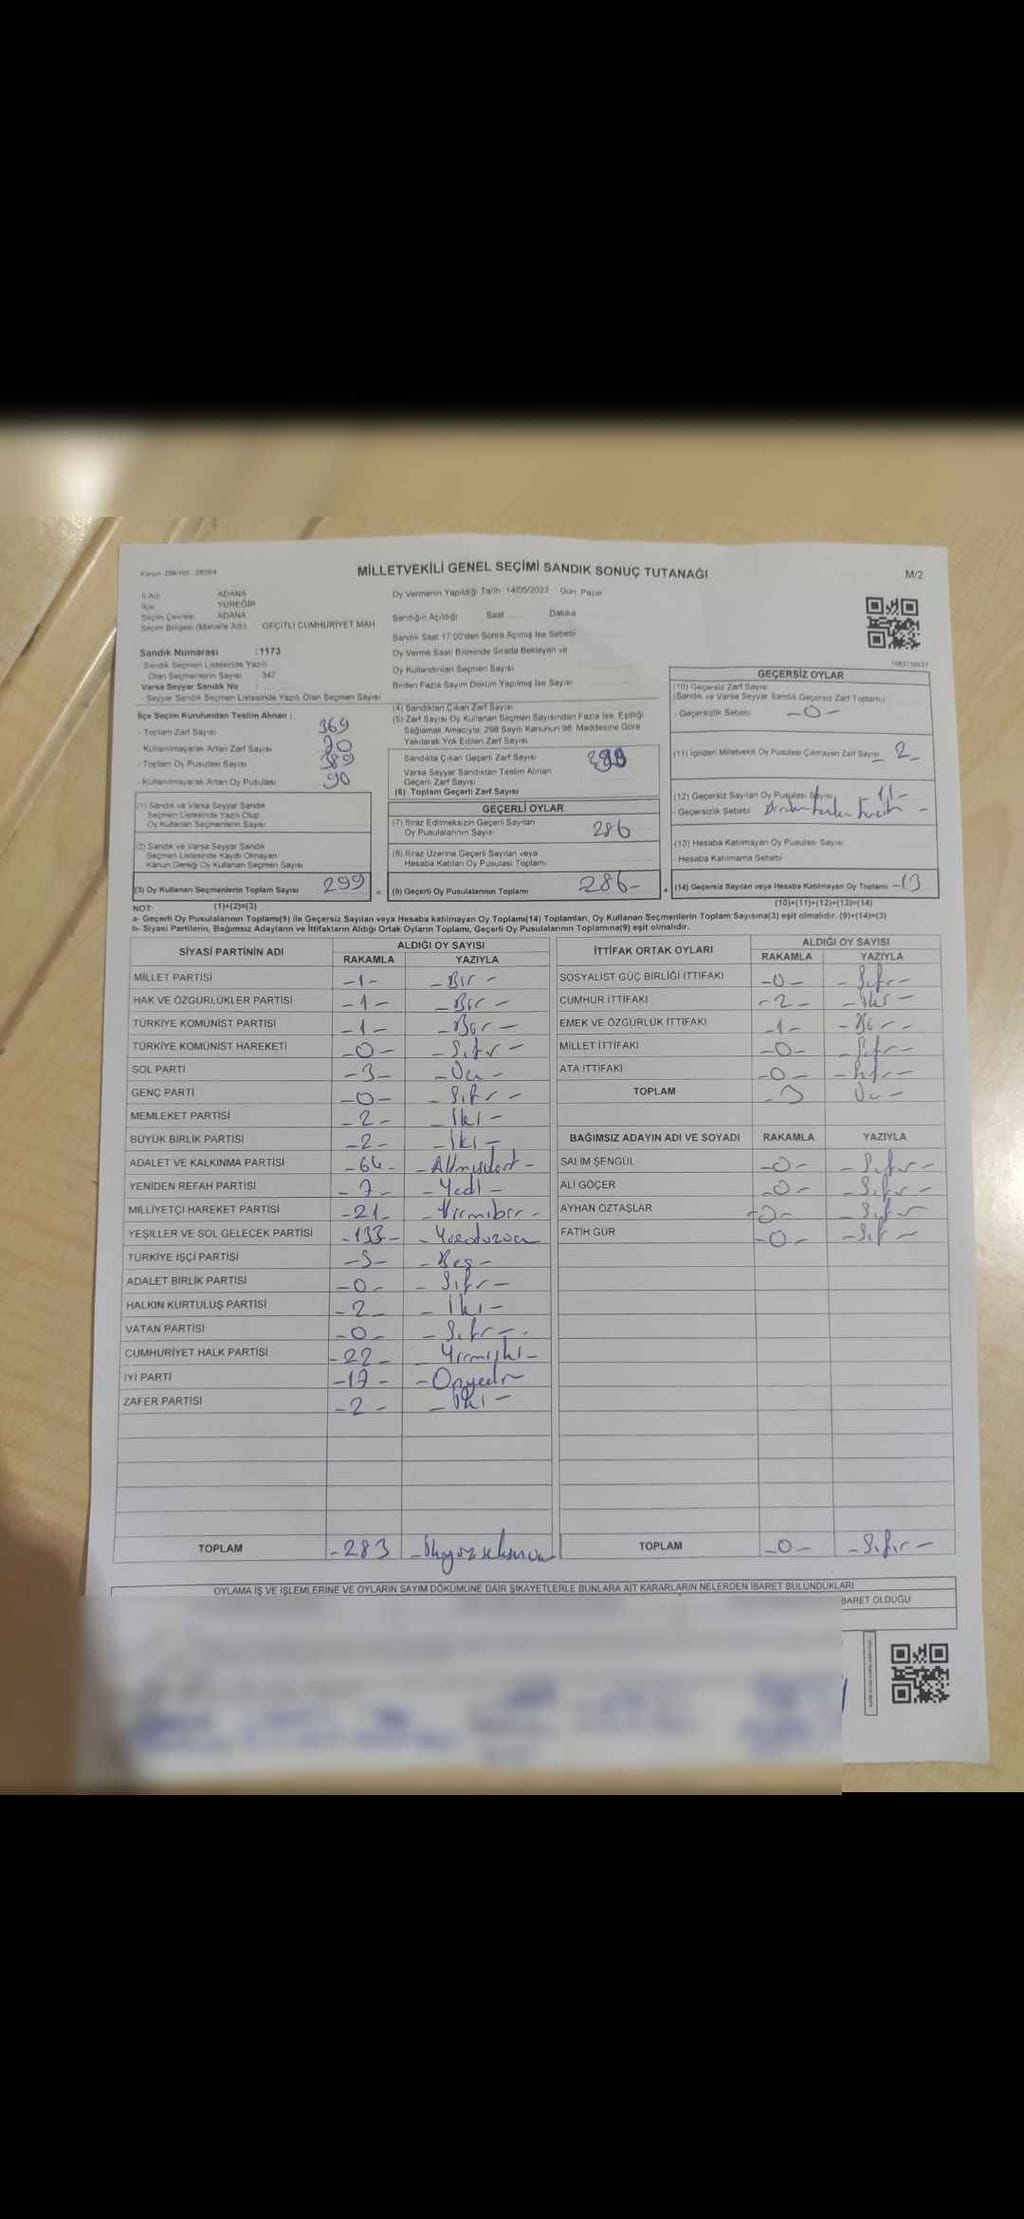 MİLLETVEKİLİ GENEL SEÇİMİ SANDIK SONUÇ TUTANAĞI
M/2
İl Adı ADANA
İlçe YÜREĞİR
Seçim Çevresi ADANA
Seçim Bölgesi (Mahalle Adı) GEÇİTLİ CUMHURİYET MAH
Sandık Numarası :1173
Sandık Seçmen Listesinde Yazılı
Olan Seçmenlerin Sayısı 347
Varsa Seyyar Sandık No :
Seyyar Sandık Seçmen Listesinde Yazılı Olan Seçmen Sayısı
Oy Vermenin Yapıldığı Tarih 14/05/2023 Gün Pazar
Sandığın Açıldığı Saat Dakika
Sandık Saat 17.00'den Sonra Açılmış İse Sebebi
Oy Verme Saati Bitiminde Sırada Bekleyen ve
Oy Kullandırılan Seçmen Sayısı
Birden Fazla Sayım Döküm Yapılmış İse Sayısı
İlçe Seçim Kurulundan Teslim Alınan :
- Toplam Zarf Sayısı 369
- Kullanılmayarak Artan Zarf Sayısı 70
- Toplam Oy Pusulası Sayısı 389
- Kullanılmayarak Artan Oy Pusulası 90
(1) Sandık ve Varsa Seyyar Sandık
Seçmen Listesinde Yazılı Olup
Oy Kullanan Seçmenlerin Sayısı
(2) Sandık ve Varsa Seyyar Sandık
Seçmen Listesinde Kaydı Olmayan
Kanun Gereği Oy Kullanan Seçmen Sayısı
(3) Oy Kullanan Seçmenlerin Toplam Sayısı 299 =
(1)+(2)=(3)
(4) Sandıktan Çıkan Zarf Sayısı
(5) Zarf Sayısı Oy Kullanan Seçmen Sayısından Fazla İse, Eşitliği
Sağlamak Amacıyla; 298 Sayılı Kanunun 98. Maddesine Göre
Yakılarak Yok Edilen Zarf Sayısı
Sandıkta Çıkan Geçerli Zarf Sayısı
Varsa Seyyar Sandıktan Teslim Alınan
Geçerli Zarf Sayısı
(6) Toplam Geçerli Zarf Sayısı
GEÇERLİ OYLAR
(7) İtiraz Edilmeksizin Geçerli Sayılan
Oy Pusulalarının Sayısı 286
(8) İtiraz Üzerine Geçerli Sayılan veya
Hesaba Katılan Oy Pusulası Toplamı
(9) Geçerli Oy Pusulalarının Toplamı 286- +
GEÇERSİZ OYLAR
(10) Geçersiz Zarf Sayısı
(Sandık ve Varsa Seyyar Sandık Geçersiz Zarf Toplamı)
- Geçersizlik Sebebi -0-
(11) İçinden Milletvekili Oy Pusulası Çıkmayan Zarf Sayısı 2-
(12) Geçersiz Sayılan Oy Pusulası Sayısı 11-
- Geçersizlik Sebebi
(13) Hesaba Katılmayan Oy Pusulası Sayısı
- Hesaba Katılmama Sebebi
(14) Geçersiz Sayılan veya Hesaba Katılmayan Oy Toplamı -13
(10)+(11)+(12)+(13)=(14)
NOT:
a- Geçerli Oy Pusulalarının Toplamı(9) ile Geçersiz Sayılan veya Hesaba katılmayan Oy Toplamı(14) Toplamları, Oy Kullanan Seçmenlerin Toplam Sayısına(3) eşit olmalıdır. (9)+(14)=(3)
b- Siyasi Partilerin, Bağımsız Adayların ve İttifakların Aldığı Ortak Oyların Toplamı, Geçerli Oy Pusulalarının Toplamına(9) eşit olmalıdır.
SİYASİ PARTİNİN ADI ALDIĞI OY SAYISI
RAKAMLA YAZIYLA
MİLLET PARTİSİ -1- -Bir-
HAK VE ÖZGÜRLÜKLER PARTİSİ -1- -Bir-
TÜRKİYE KOMÜNİST PARTİSİ -1- -Bir-
TÜRKİYE KOMÜNİST HAREKETİ -0- -Sıfır-
SOL PARTİ -3- -Üç-
GENÇ PARTİ -0- -Sıfır-
MEMLEKET PARTİSİ -2- -İki-
BÜYÜK BİRLİK PARTİSİ -2- -İki-
ADALET VE KALKINMA PARTİSİ -64- -Altmışdört-
YENİDEN REFAH PARTİSİ -7- -Yedi-
MİLLİYETÇİ HAREKET PARTİSİ -21- -Yirmibir-
YEŞİLLER VE SOL GELECEK PARTİSİ -133-
TÜRKİYE İŞÇİ PARTİSİ -5- -Beş-
ADALET BİRLİK PARTİSİ -0- -Sıfır-
HALKIN KURTULUŞ PARTİSİ -2- -İki-
VATAN PARTİSİ -0- -Sıfır-
CUMHURİYET HALK PARTİSİ -22- -Yirmiiki-
İYİ PARTİ -17- -Onyedi-
ZAFER PARTİSİ -2- -İki-
TOPLAM -283
İTTİFAK ORTAK OYLARI ALDIĞI OY SAYISI
RAKAMLA YAZIYLA
SOSYALİST GÜÇ BİRLİĞİ İTTİFAKI -0- -Sıfır-
CUMHUR İTTİFAKI -2- -İki-
EMEK VE ÖZGÜRLÜK İTTİFAKI -1- -Bir-
MİLLET İTTİFAKI -0- -Sıfır-
ATA İTTİFAKI -0- -Sıfır-
TOPLAM -3 Üç-
BAĞIMSIZ ADAYIN ADI VE SOYADI RAKAMLA YAZIYLA
SALİM ŞENGÜL -0- -Sıfır-
ALİ GÖÇER -0- -Sıfır-
AYHAN ÖZTAŞLAR -0- -Sıfır-
FATİH GÜR -0- -Sıfır-
TOPLAM -0- -Sıfır-
OYLAMA İŞ VE İŞLEMLERİNE VE OYLARIN SAYIM DÖKÜMÜNE DAİR ŞİKAYETLERLE BUNLARA AİT KARARLARIN NELERDEN İBARET BULUNDUKLARI
BARET OLDUĞU